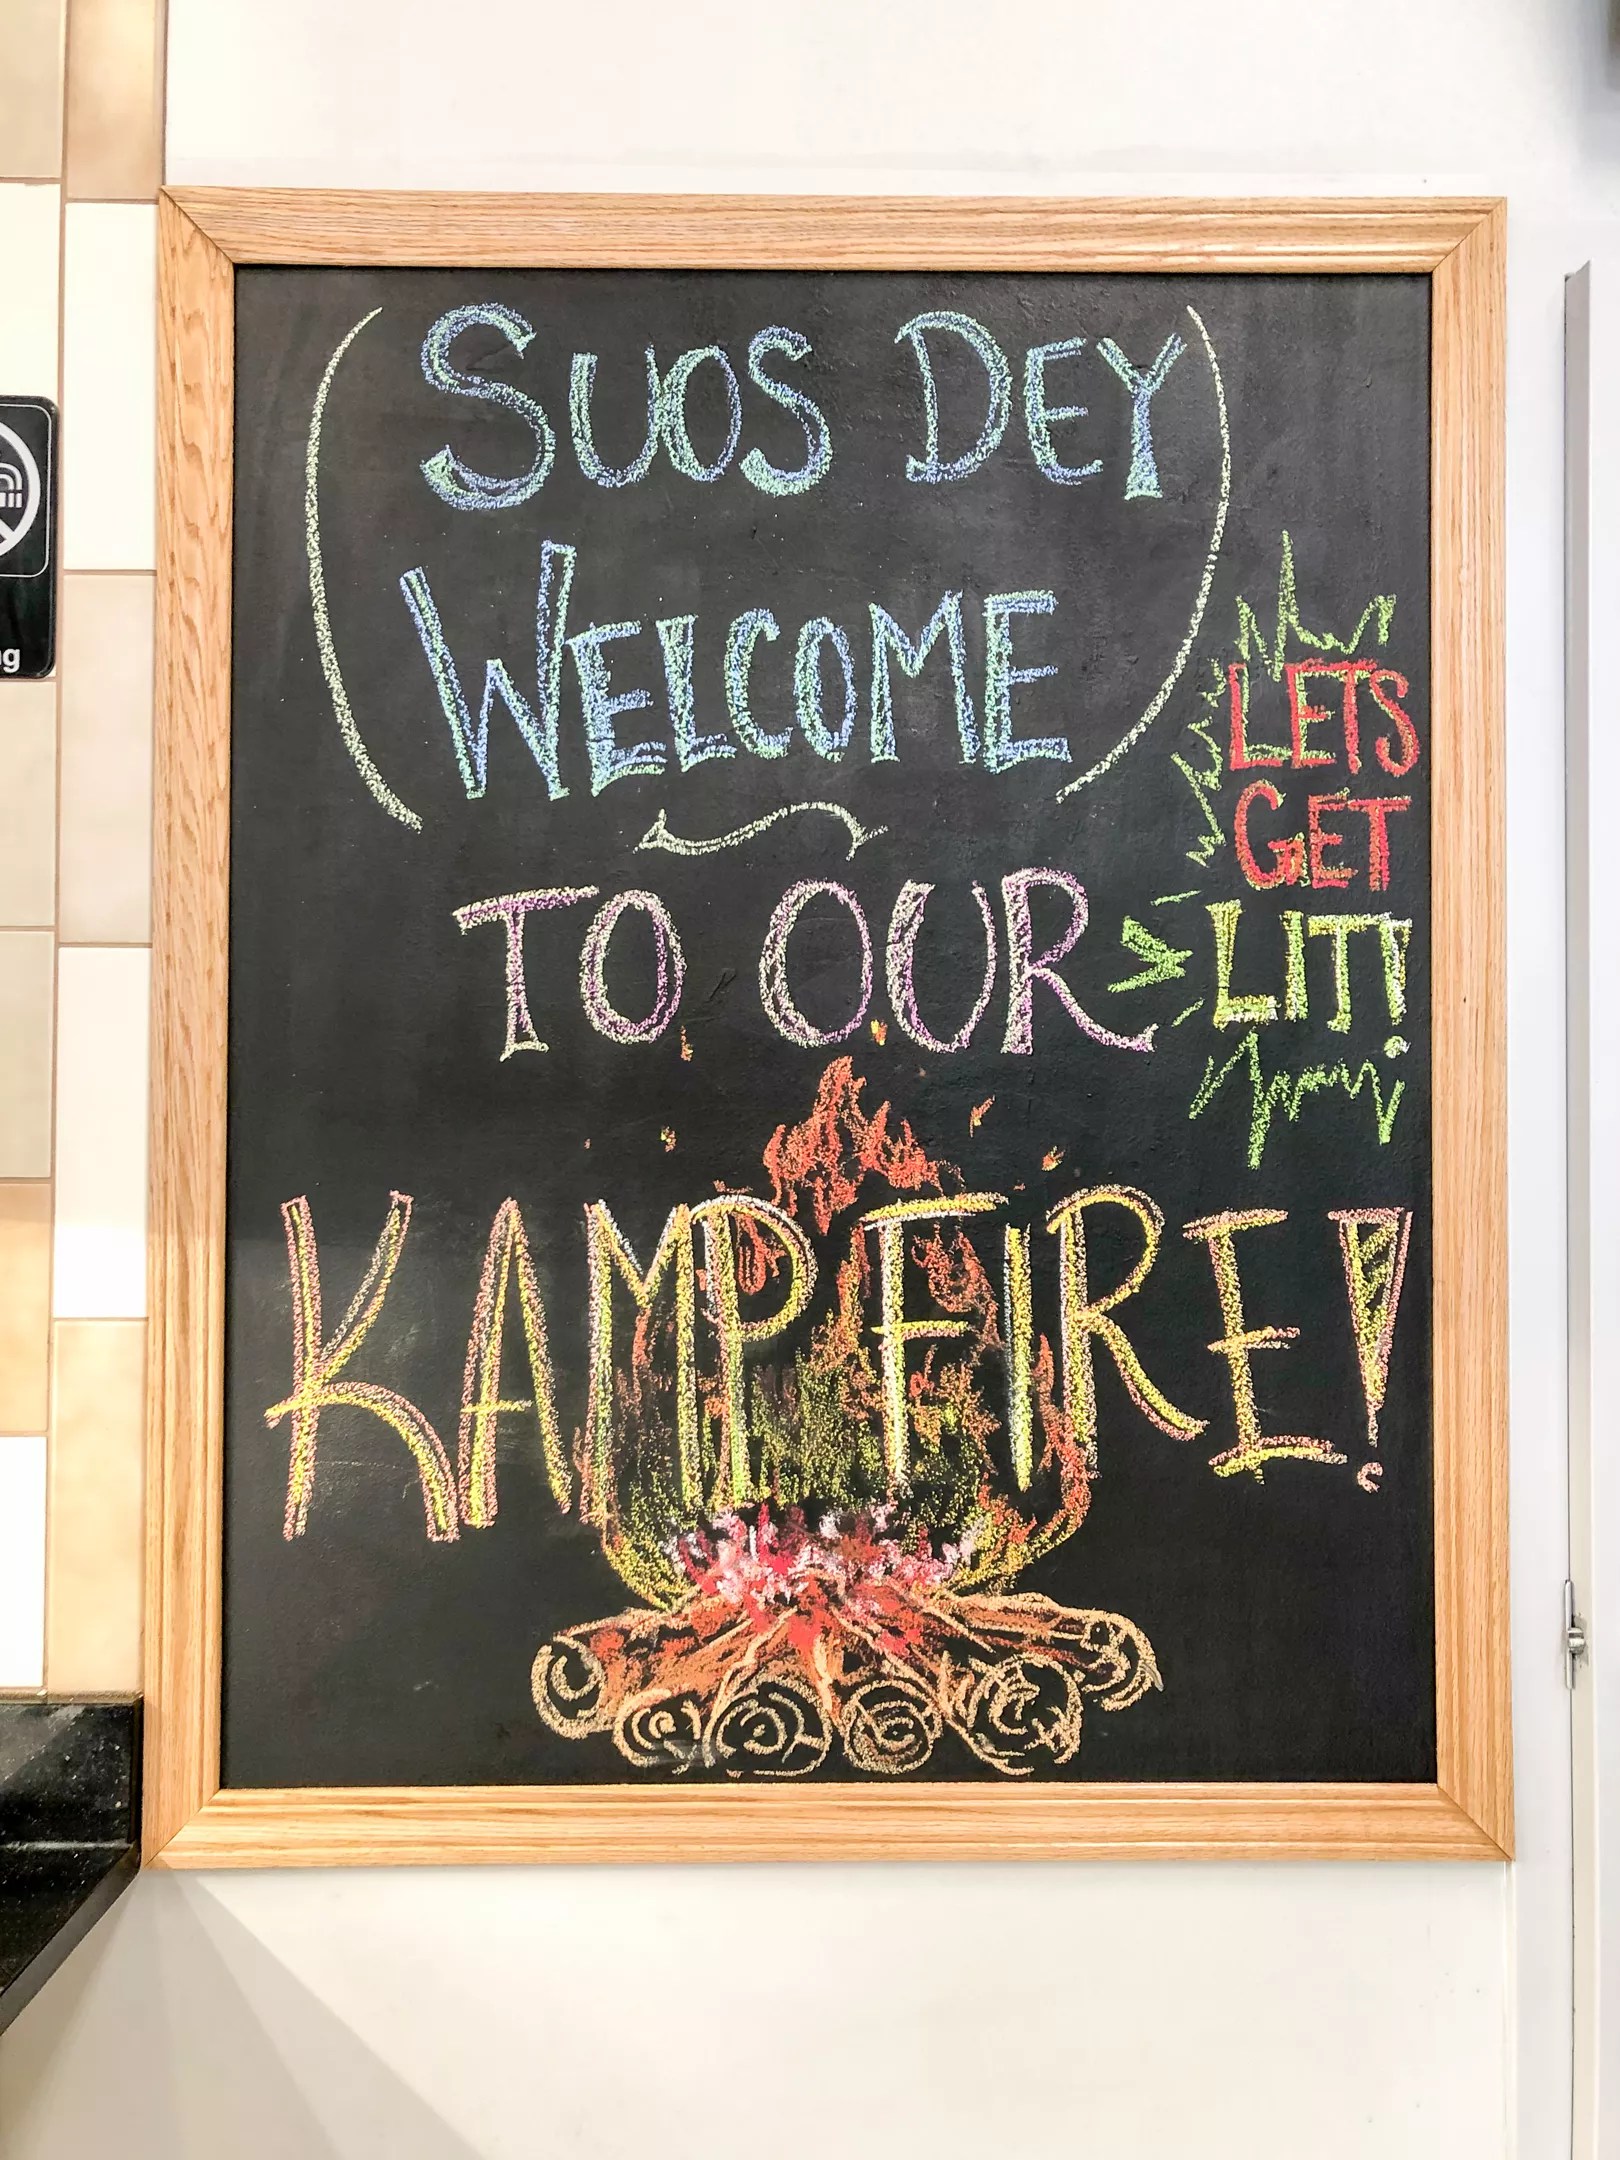 SUOS DEY
WELCOME
TO OUR
KAMPFIRE!
LETS
GET
LIT!